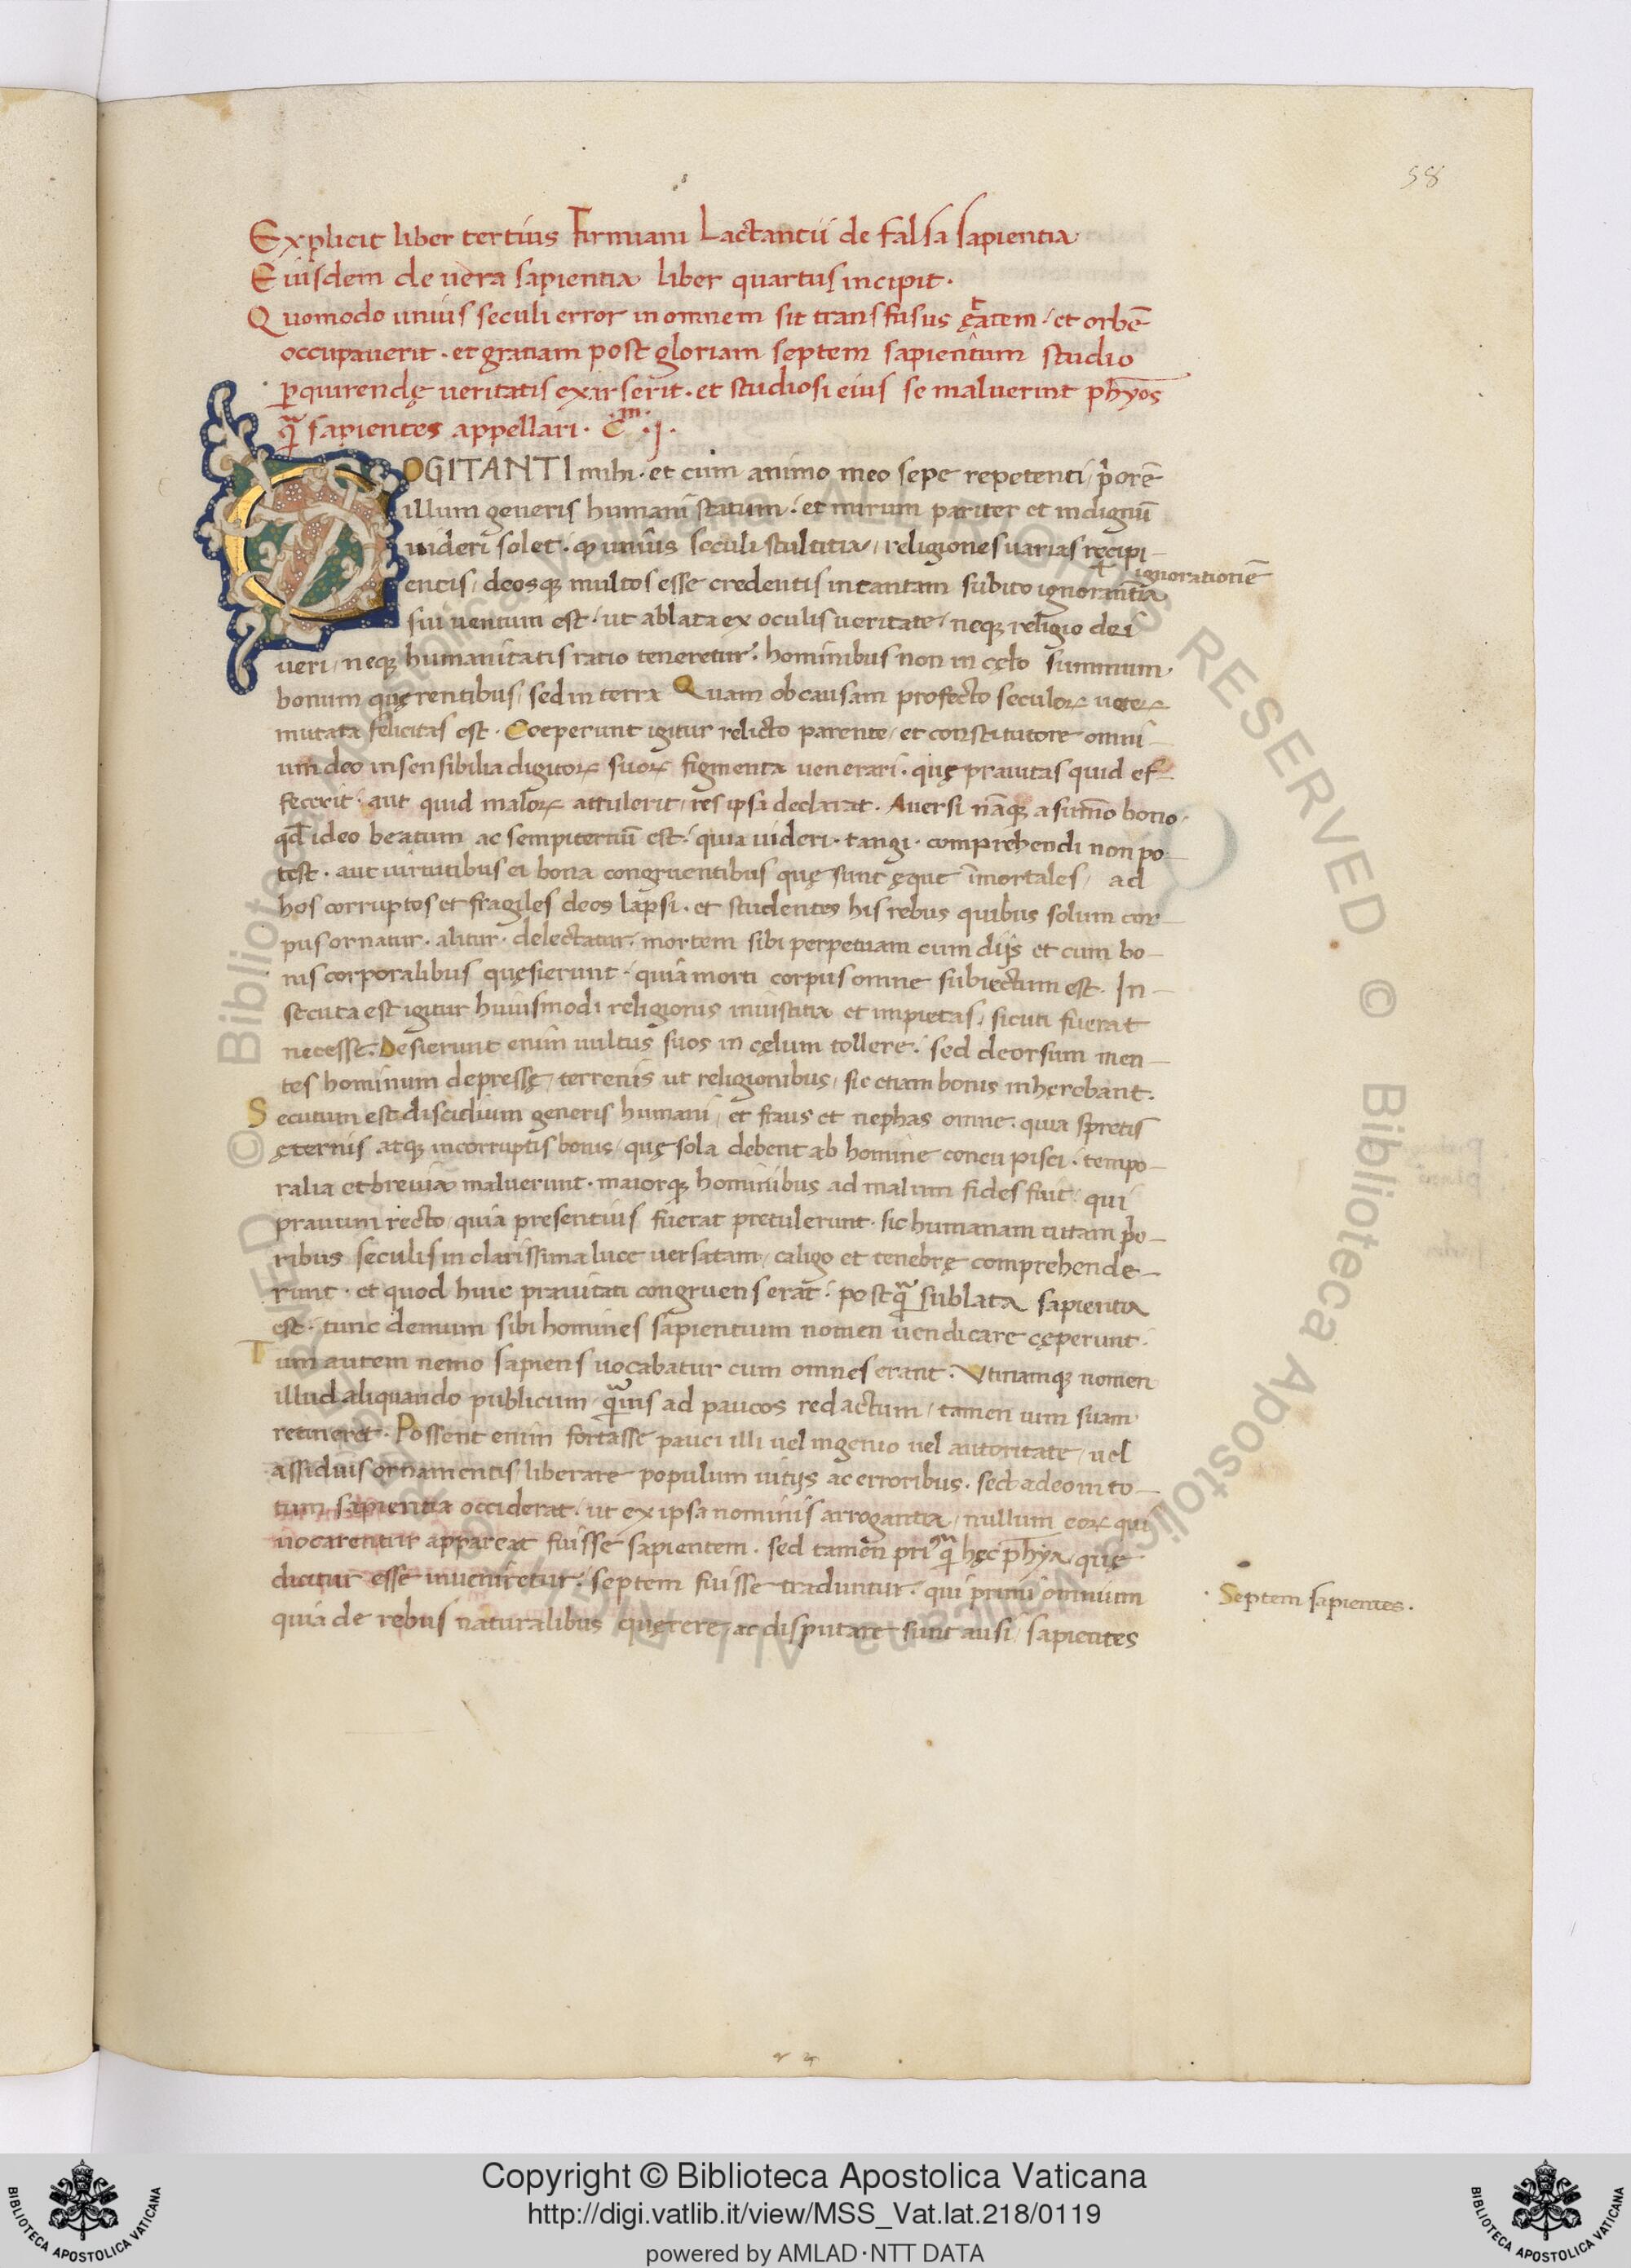 58
Explicit liber tertius Firmiani Lactantii de falsa sapientia
Eiusdem de uera sapientia liber quartus incipit.
Quomodo unius seculi error in omnem sit transfusus ętatem. et orbē
occupauerit. et gratiam post gloriam septem sapientum studio
ꝑquirendę ueritatis exarserit. et studiosi eius se maluerint phỹos
qͣ sapientes appellari. Cᵐ. j.
COGITANTI mihi. et cum animo meo sepe repetenti, p̉orē
illum generis humani statum. et mirum pariter et indignū
uideri solet. ꝙ unius seculi stultitia, religiones uarias recipi-
entis, deosqꝫ multos esse credentis in tantam subito ignorantia
ignorationē
sui uentum est. ut ablata ex oculis ueritate, neqꝫ religio dei
ueri, neqꝫ humanitatis ratio teneretur. hominibus non in cęlo summum
bonum quęrentibus, sed in terra Quam ob causam profecto seculoꝝ ueteꝝ
mutata felicitas est. Coeperunt igitur relicto parente, et constitutore omni-
um deo insensibilia digitoꝝ suoꝝ figmenta uenerari. quę prauitas quid ef-
fecerit. aut quid maloꝝ attulerit, res ipsa declarat. Auersi nāqꝫ a sum̄o bono.
qđ ideo beatum ac sempiternū est. quia uideri. tangi. comprehendi non po-
test. aut uirtutibus ei bona congruentibus quę sunt ęque īmortales, ad
hos corruptos et fragiles deos lapsi. et studentes his rebus quibus solum cor-
pus ornatur. alitur. delectatur. mortem sibi perpetuam cum dijs et cum bo-
nis corporalibus quęsierunt. quia morti corpus omne subiectum est. In-
secuta est igitur huiusmodi religionis iniustitia et impietas, sicuti fuerat
necesse. Desierunt enim uultus suos in cęlum tollere. sed deorsum men-
tes hominum depressę, terrenis ut religionibus, sic etiam bonis inhęrebant.
Secutum est discidium generis humani, et fraus et nephas omne. quia spretis
ęternis atqꝫ incorruptis bonis, quę sola debent ab homine concupisci. tempo-
ralia et breuia maluerunt. maiorqꝫ hominibus ad malum fides fuit. qui
prauum recto, quia presentius fuerat pretulerunt. sic humanam uitam p̉o-
ribus seculis in clarissima luce uersatam, caligo et tenebrę comprehende-
runt. et quod huic prauitati congruens erat. postqͣ sublata sapientia
est. tunc demum sibi homines sapientium nomen uendicare cęperunt.
Tum autem nemo sapiens uocabatur cum omnes erant. Vtinamqꝫ nomen
illud aliquando publicum, qͣuis ad paucos redactum, tamen uim suam
retineret. Possent enim fortasse pauci illi uel ingenio uel autoritate, uel
assiduis ornamentis, liberare populum uitijs ac erroribus. sed adeo in to-
tum sapientia occiderat, ut ex ipsa nominis arrogantia, nullum eoꝝ qui
uocarentur appareat fuisse sapientem. sed tamen priꝰqͣ hęc phỹa, quę
dicitur esse inueniretur. septem fuisse traduntur. qui primi omnium
quia de rebus naturalibus quęrere, ac disputare sunt ausi, sapientes
. Septem sapientes.
Copyright © Biblioteca Apostolica Vaticana
http://digi.vatlib.it/view/MSS_Vat.lat.218/0119
powered by AMLAD·NTT DATA
BIBLIOTECA APOSTOLICA VATICANA
BIBLIOTECA APOSTOLICA VATICANA